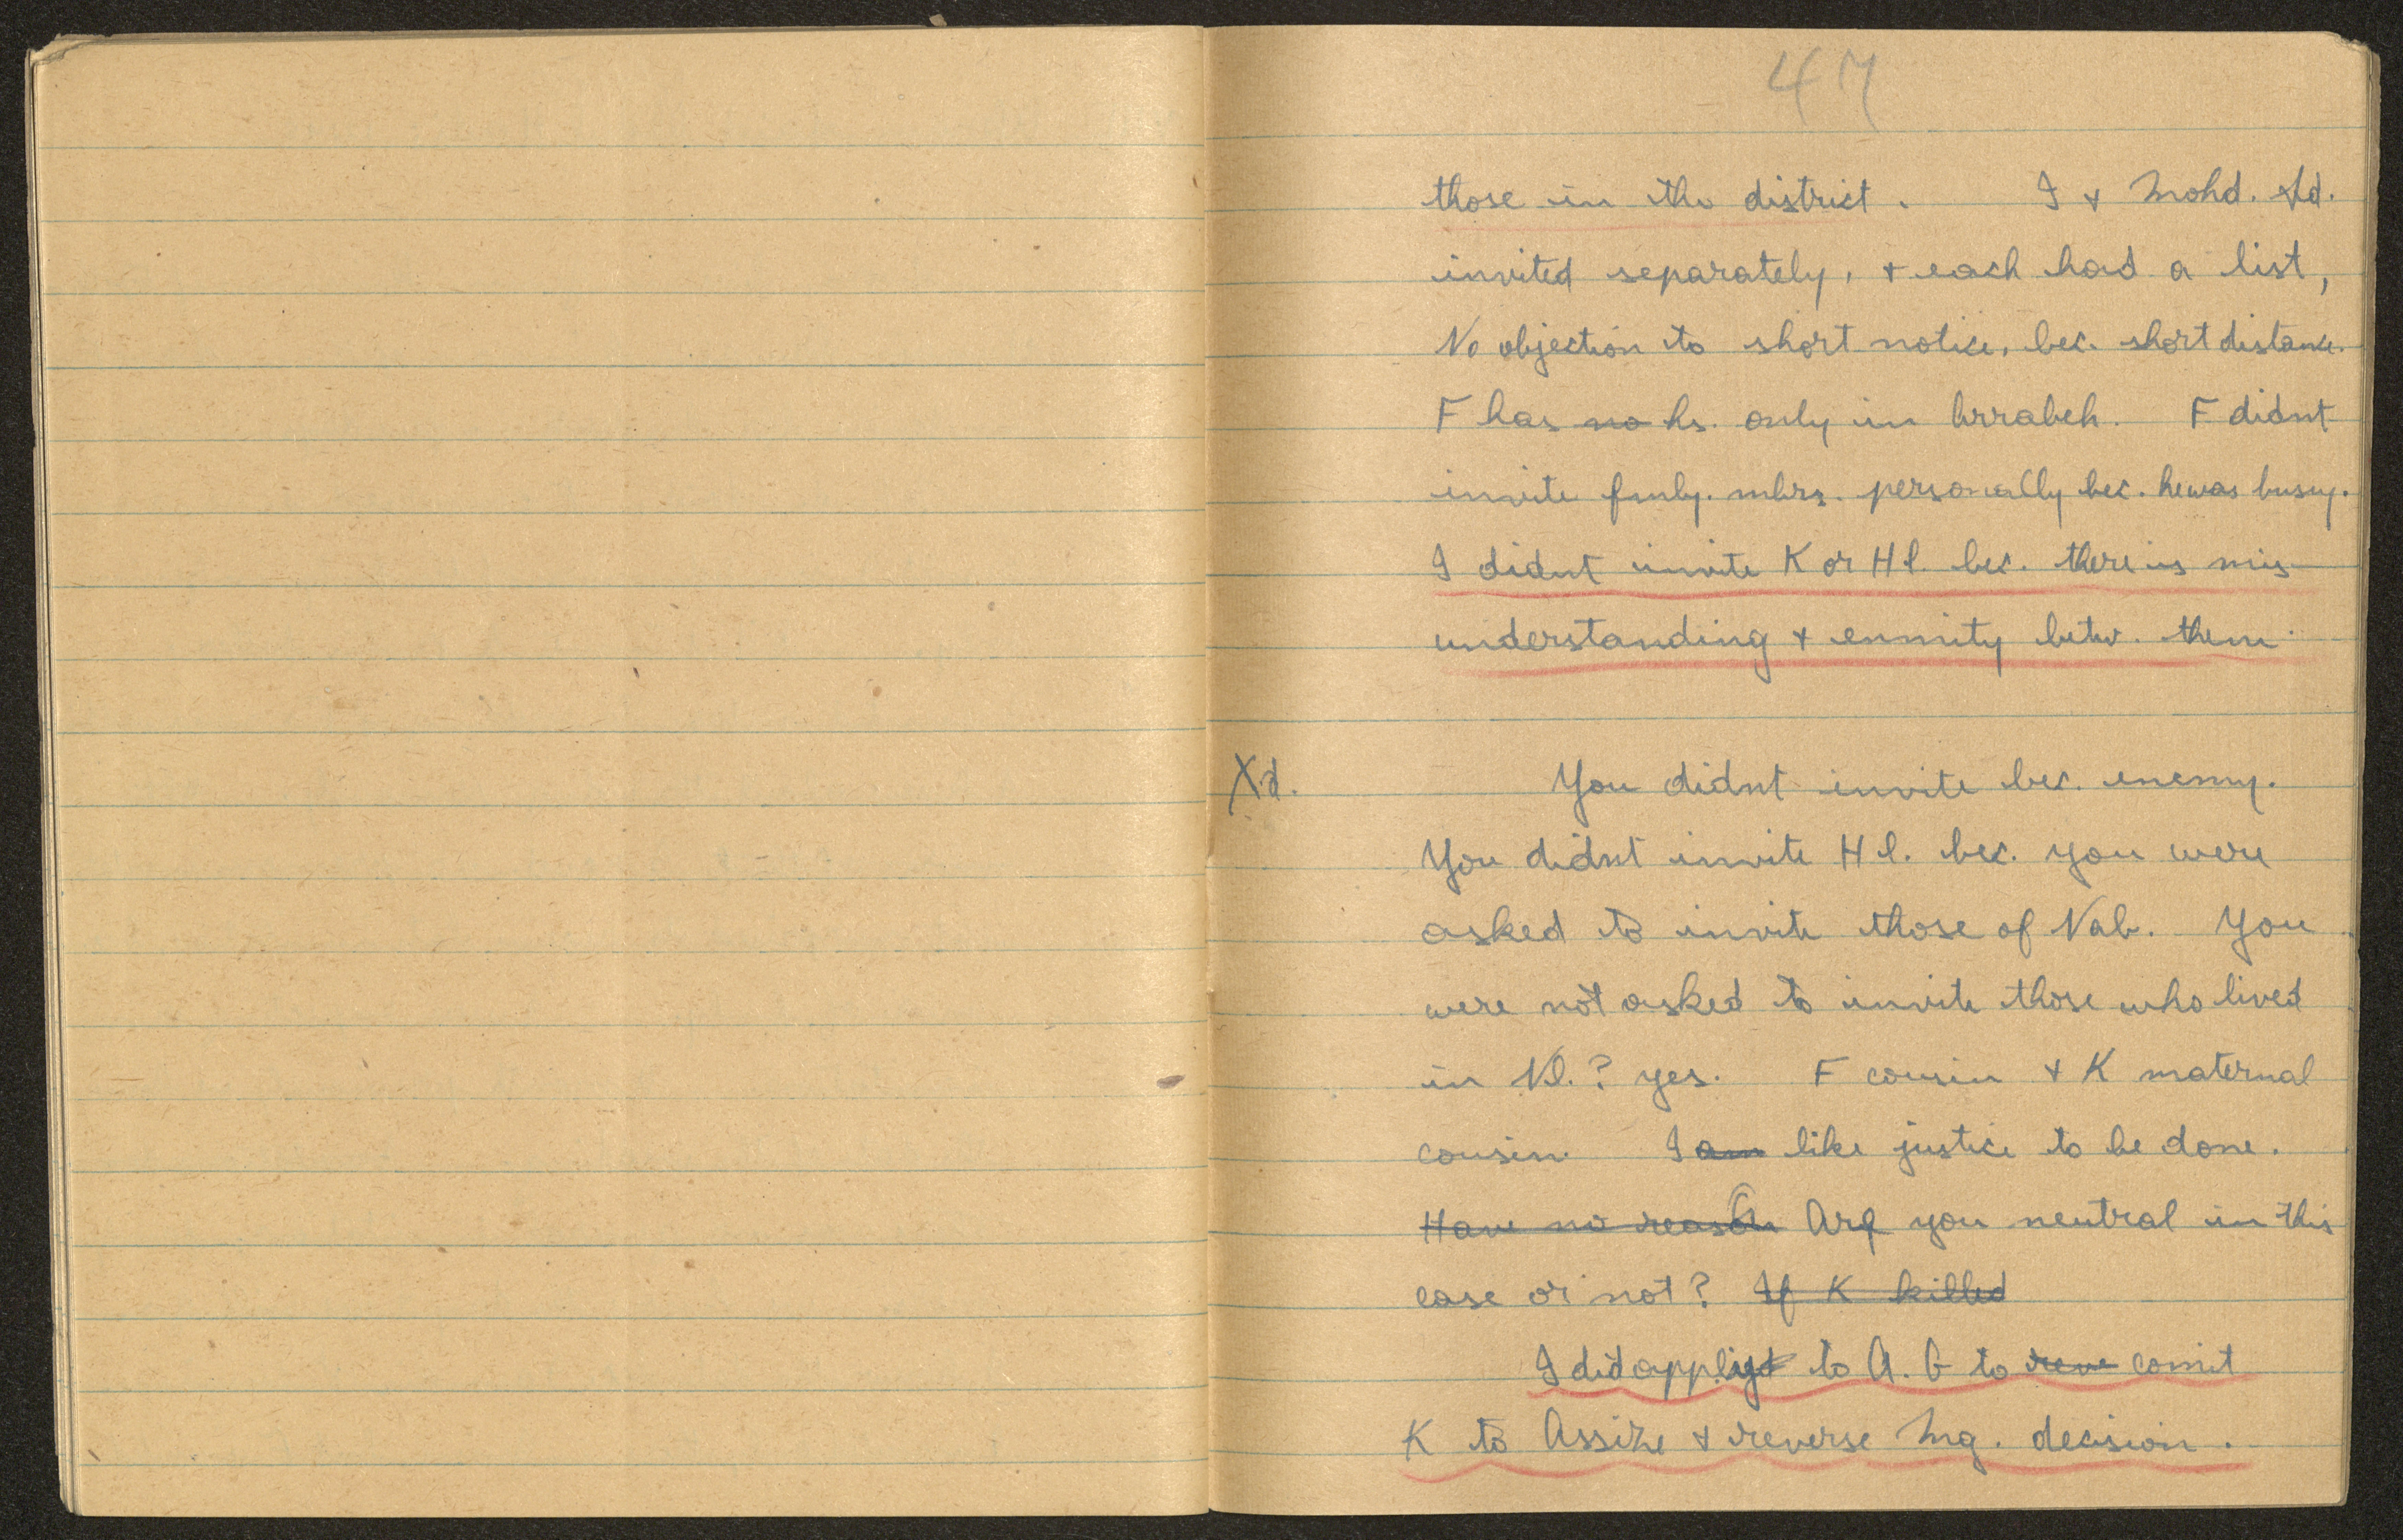 47
those in the district. I & Mohd.
invited separately, & each had a list,
No objection to short notice, bec. short distance.
F has no hs. only in Arrabeh. F didnt
invite fmly. mbrs. personally bec. he was busy.
I didnt invite K or Hl. bec. there is mis-
understanding & enmity betw. them.
Xd. You didnt invite bec. enemy.
You didnt invite Hl. bec. you were
asked to invite those of Nab. You
were not asked to invite those who lived
in Nl.? yes. F cousin & K maternal
cousin. I am like justice to be done.
Have no reason Are you neutral in this
case or not? If K killed
I did apply to A.G to reve comit
K to Assize & reverse Mg. decision.